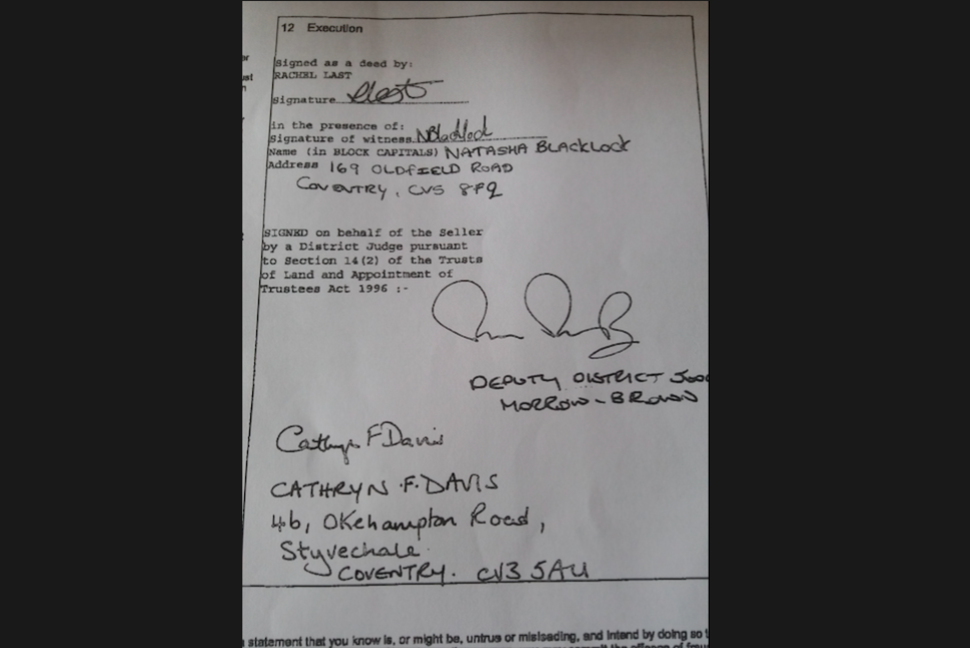 12 Execution
Signed as a deed by:
RACHEL LAST
Signature
in the presence of:
Signature of witness NBlacklock
Name (in BLOCK CAPITALS) NATASHA BLACKLOCK
Address 169 OLDFIELD ROAD
COVENTRY, CV5 8FQ
SIGNED on behalf of the Seller
by a District Judge pursuant
to Section 14(2) of the Trusts
of Land and Appointment of
Trustees Act 1996 :-
DEPUTY DISTRICT
MORROW-BROWN
Cathryn F Davis
CATHRYN .F. DAVIS
46, Okehampton Road,
Styvechale.
COVENTRY. CV3 5AU
statement that you know is, or might be, untrue or misleading, and intend by doing so